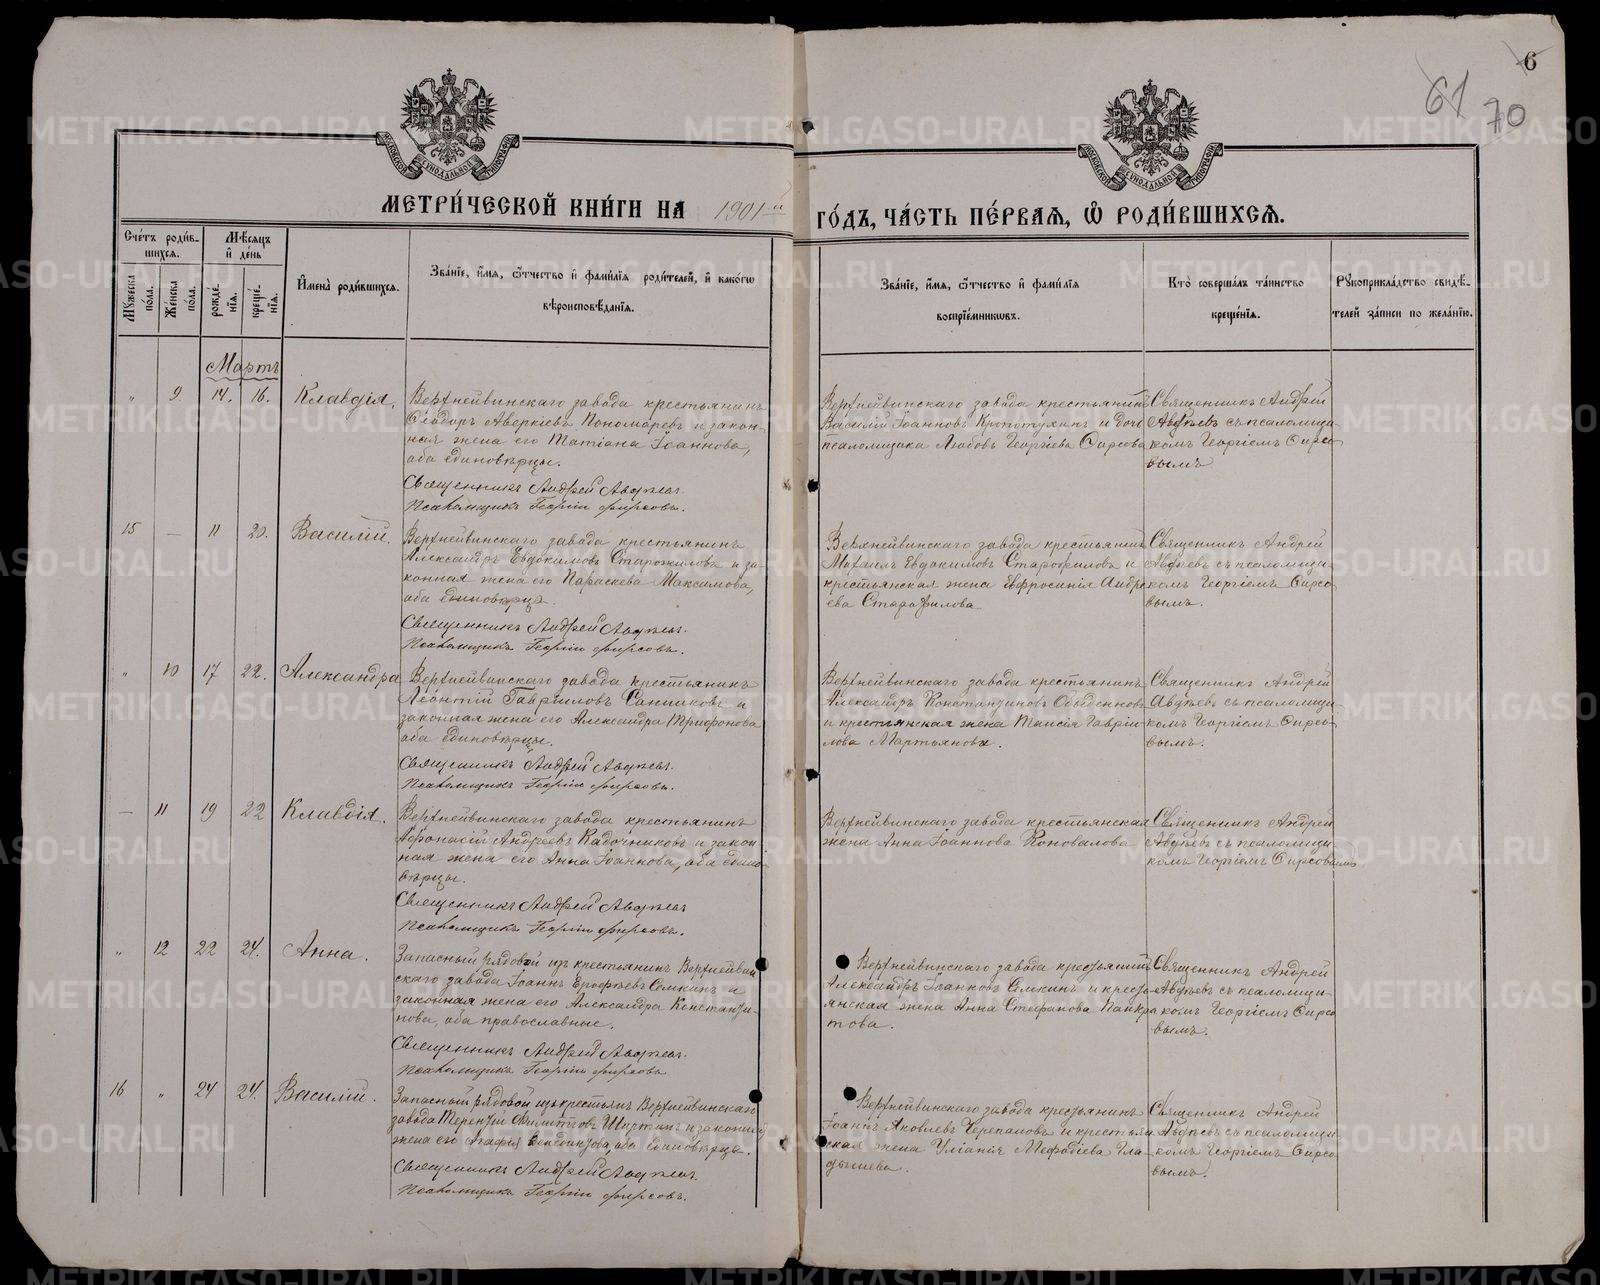 6
61 70
МОСКОВСКОЙ СУНОДАЛЬНОЙ ТИПОГРАФІИ
МОСКОВСКОЙ СУНОДАЛЬНОЙ ТИПОГРАФІИ
МЕТРИ́ЧЕСКОЙ КНИ́ГИ НА 1901й ГО́ДЪ, ЧА́СТЬ ПЕ́РВАЯ, Ѽ РОДИ́ВШИХСЯ.
Сче́тъ роди́в-
шихся.
Мѣ́сяцъ
и҆ де́нь
Мꙋ́жеска
по́ла.
Же́нска
по́ла.
рожде́-
нїѧ.
креще́-
нїѧ.
И҆мена̀ роди́вшихся.
Зва́нїе, и҆́мя, ѻ҆́тчество и҆ фами́лїя роди́телей, и҆ како́гѡ
вѣроисповѣ́данїя.
Зва́нїе, и҆́мя, ѻ҆́тчество и҆ фами́лїя
воспрїе́мникѡвъ.
Кто̀ соверша́лъ та́инство
креще́нїя.
Рꙋкоприкла́дство свидѣ́-
телей за́писи по жела́нїю.
Мартъ
„ 9. 14. 16. Клавдія.
Верхнейвинскаго завода крестьянинъ
Ѳеодоръ Аверкіевъ Пономаревъ и закон-
ная жена его Татіана Іоаннова,
оба единовѣрцы.
Священникъ Андрей Авдѣевъ.
Псаломщикъ Георгій Фирсовъ.
Верхнейвинскаго завода крестьянинъ
Василій Іоанновъ Кропотухинъ и дочь
псаломщика Любовь Георгіева Фирсова
Священникъ Андрей
Авдѣевъ съ псаломщи-
комъ Георгіемъ Фирсо-
вымъ
15 — 11 20. Василій.
Верхнейвинскаго завода крестьянинъ
Александръ Евдокимовъ и за-
конная жена его Параскева Максимова,
оба единовѣрцы.
Священникъ Андрей Авдѣевъ.
Псаломщикъ Георгій Фирсовъ.
Верхнейвинскаго завода крестьянинъ
Михаилъ Евдокимовъ и
крестьянская жена Евфросинія Андре-
ева
Священникъ Андрей
Авдѣевъ съ псаломщи-
комъ Георгіемъ Фирсо-
вымъ.
„ 10 17 22. Александра
Верхнейвинскаго завода крестьянинъ
Леонтій Гавріиловъ Санниковъ и
законная жена его Александра Трифонова
оба единовѣрцы.
Священникъ Андрей Авдѣевъ.
Псаломщикъ Георгій Фирсовъ.
Верхнейвинскаго завода крестьянинъ
Александръ Константиновъ Обѣденновъ
и крестьянская жена Таисія Гаврі-
лова Мартьянова.
Священникъ Андрей
Авдѣевъ съ псаломщи-
комъ Георгіемъ Фирсо-
вымъ.
— 11 19 22 Клавдія.
Верхнейвинскаго завода крестьянинъ
Афонасій Андреевъ Кадочниковъ и закон-
ная жена его Анна Іоаннова, оба едино-
вѣрцы.
Священникъ Андрей Авдѣевъ
Псаломщикъ Георгій Фирсовъ.
Верхнейвинскаго завода крестьянская
жена Анна Іоаннова Коновалова
Священникъ Андрей
Авдѣевъ съ псаломщи-
комъ Георгіемъ Фирсовымъ
„ 12 22 24. Анна.
Запасный рядовой изъ крестьянъ Верхнейвин-
скаго завода Іоаннъ Ерофѣевъ Семкинъ и
законная жена его Александра Константи-
нова, оба православные.
Священникъ Андрей Авдѣевъ.
Псаломщикъ Георгій Фирсовъ
Верхнейвинскаго завода крестьянинъ
Александръ Іоанновъ Семкинъ и кресть-
янская жена Анна Стефанова Панкра-
това.
Священникъ Андрей
Авдѣевъ съ псаломщи-
комъ Георгіемъ Фирсо-
вымъ.
16 „ 24 24. Василій.
Запасный рядовой изъ крестьянъ Верхнейвинскаго
завода Терентій и законная
жена его Агафія оба единовѣрцы.
Священникъ Андрей Авдѣевъ.
Псаломщикъ Георгій Фирсовъ.
Верхнейвинскаго завода крестьянинъ
Іоаннъ Яковлевъ Черепановъ и крестьян-
ская жена Уліанія Мефодіева Гла-
дышева.
Священникъ Андрей
Авдѣевъ съ псаломщи-
комъ Георгіемъ Фирсо-
вымъ.
METRIKI.GASO-URAL.RU